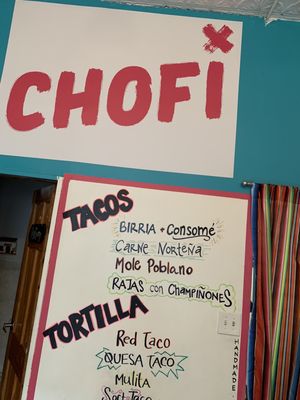 CHOFI
TACOS
BIRRIA + Consomé
CARNE Norteña
Mole Poblano
RAJAS con CHAMPIÑONES
TORTILLA
Red Taco
QUESA TACO
Mulita
Soft Taco
HANDMADE